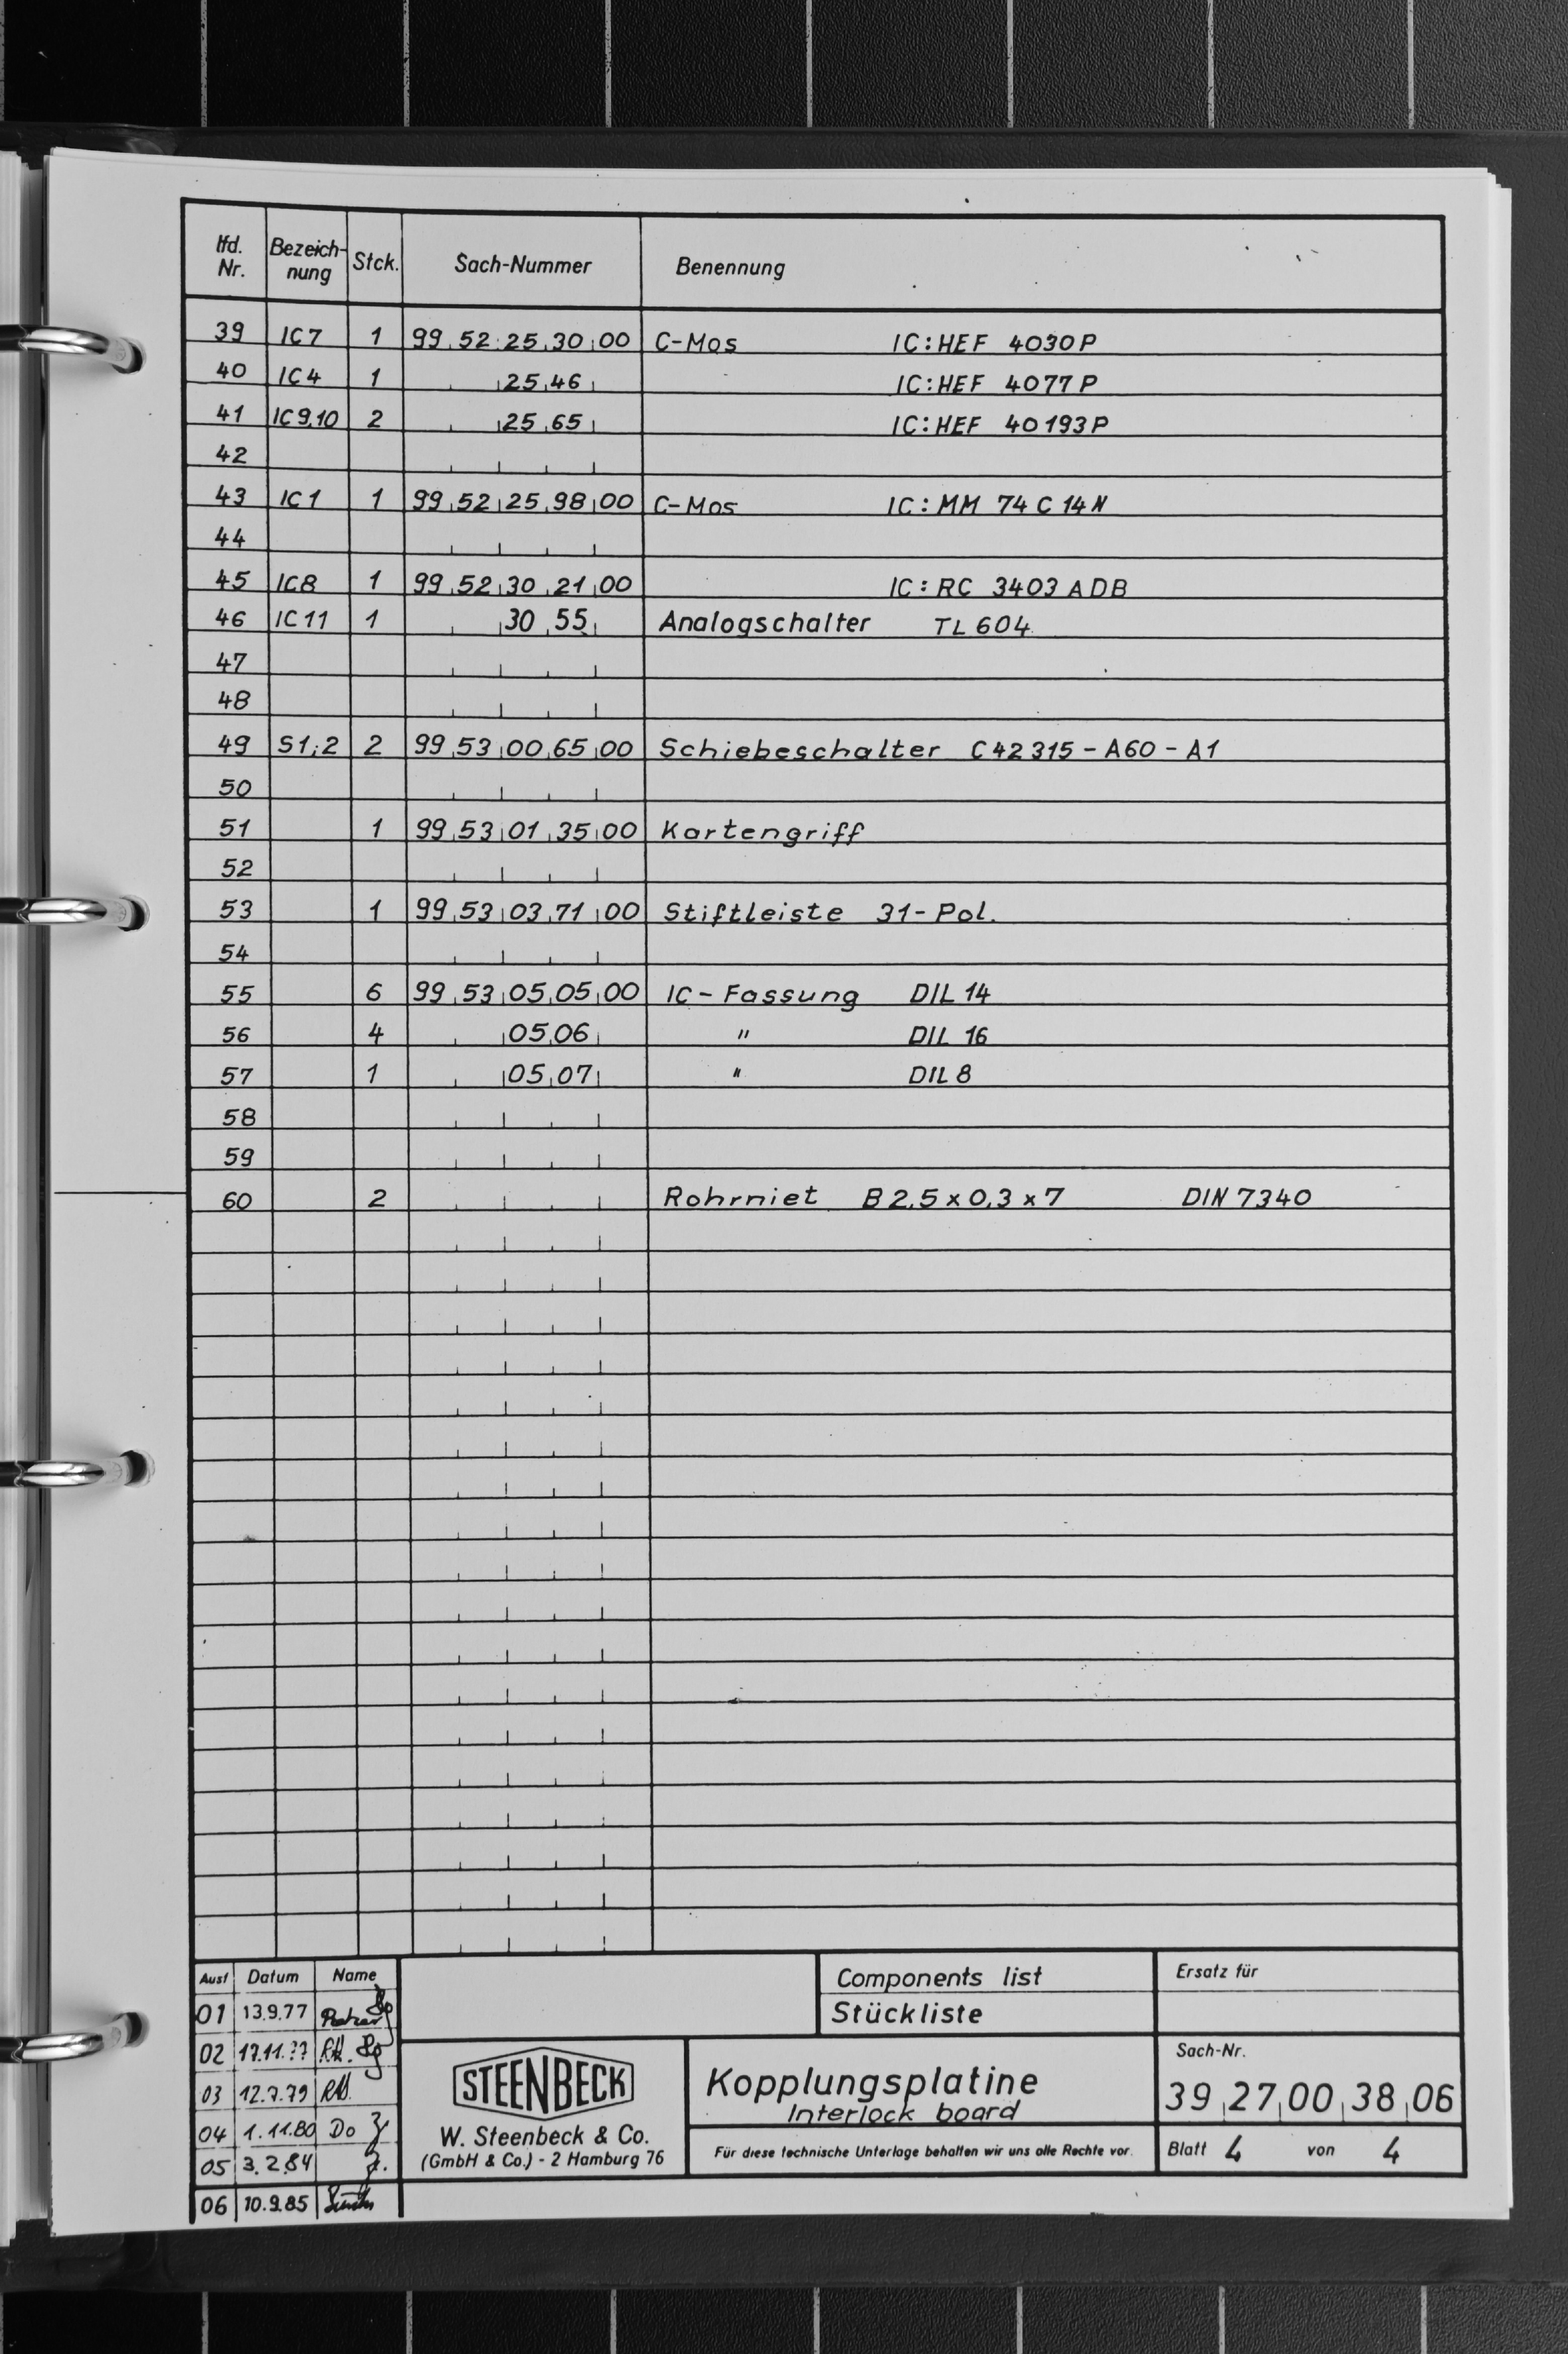 lfd. Nr. Bezeich-nung Stck. Sach-Nummer Benennung
39 IC7 1 99.52.25.30.00 C-Mos IC:HEF 4030P
40 IC4 1 25.46 IC:HEF 4077P
41 IC9,10 2 25.65 IC:HEF 40193P
42
43 IC1 1 99.52.25.98.00 C-Mos IC:MM 74C14N
44
45 IC8 1 99.52.30.21.00 IC:RC 3403ADB
46 IC11 1 30.55 Analogschalter TL604
47
48
49 S1;2 2 99.53.00.65.00 Schiebeschalter C42315-A60-A1
50
51 1 99.53.01.35.00 Kartengriff
52
53 1 99.53.03.71.00 Stiftleiste 31-Pol.
54
55 6 99.53.05.05.00 IC-Fassung DIL 14
56 4 05.06 " DIL 16
57 1 05.07 " DIL 8
58
59
60 2 Rohrniet B2,5x0,3x7 DIN 7340
Ausf Datum Name
01 13.9.77
02 17.11.77
03 12.7.79
04 1.11.80 Do
05 3.2.84
06 10.9.85
Components list
Stückliste
Ersatz für
STEENBECK
W. Steenbeck & Co.
(GmbH & Co.) - 2 Hamburg 76
Kopplungsplatine
Interlock board
Für diese technische Unterlage behalten wir uns alle Rechte vor.
Sach-Nr.
39.27.00.38.06
Blatt 4 von 4